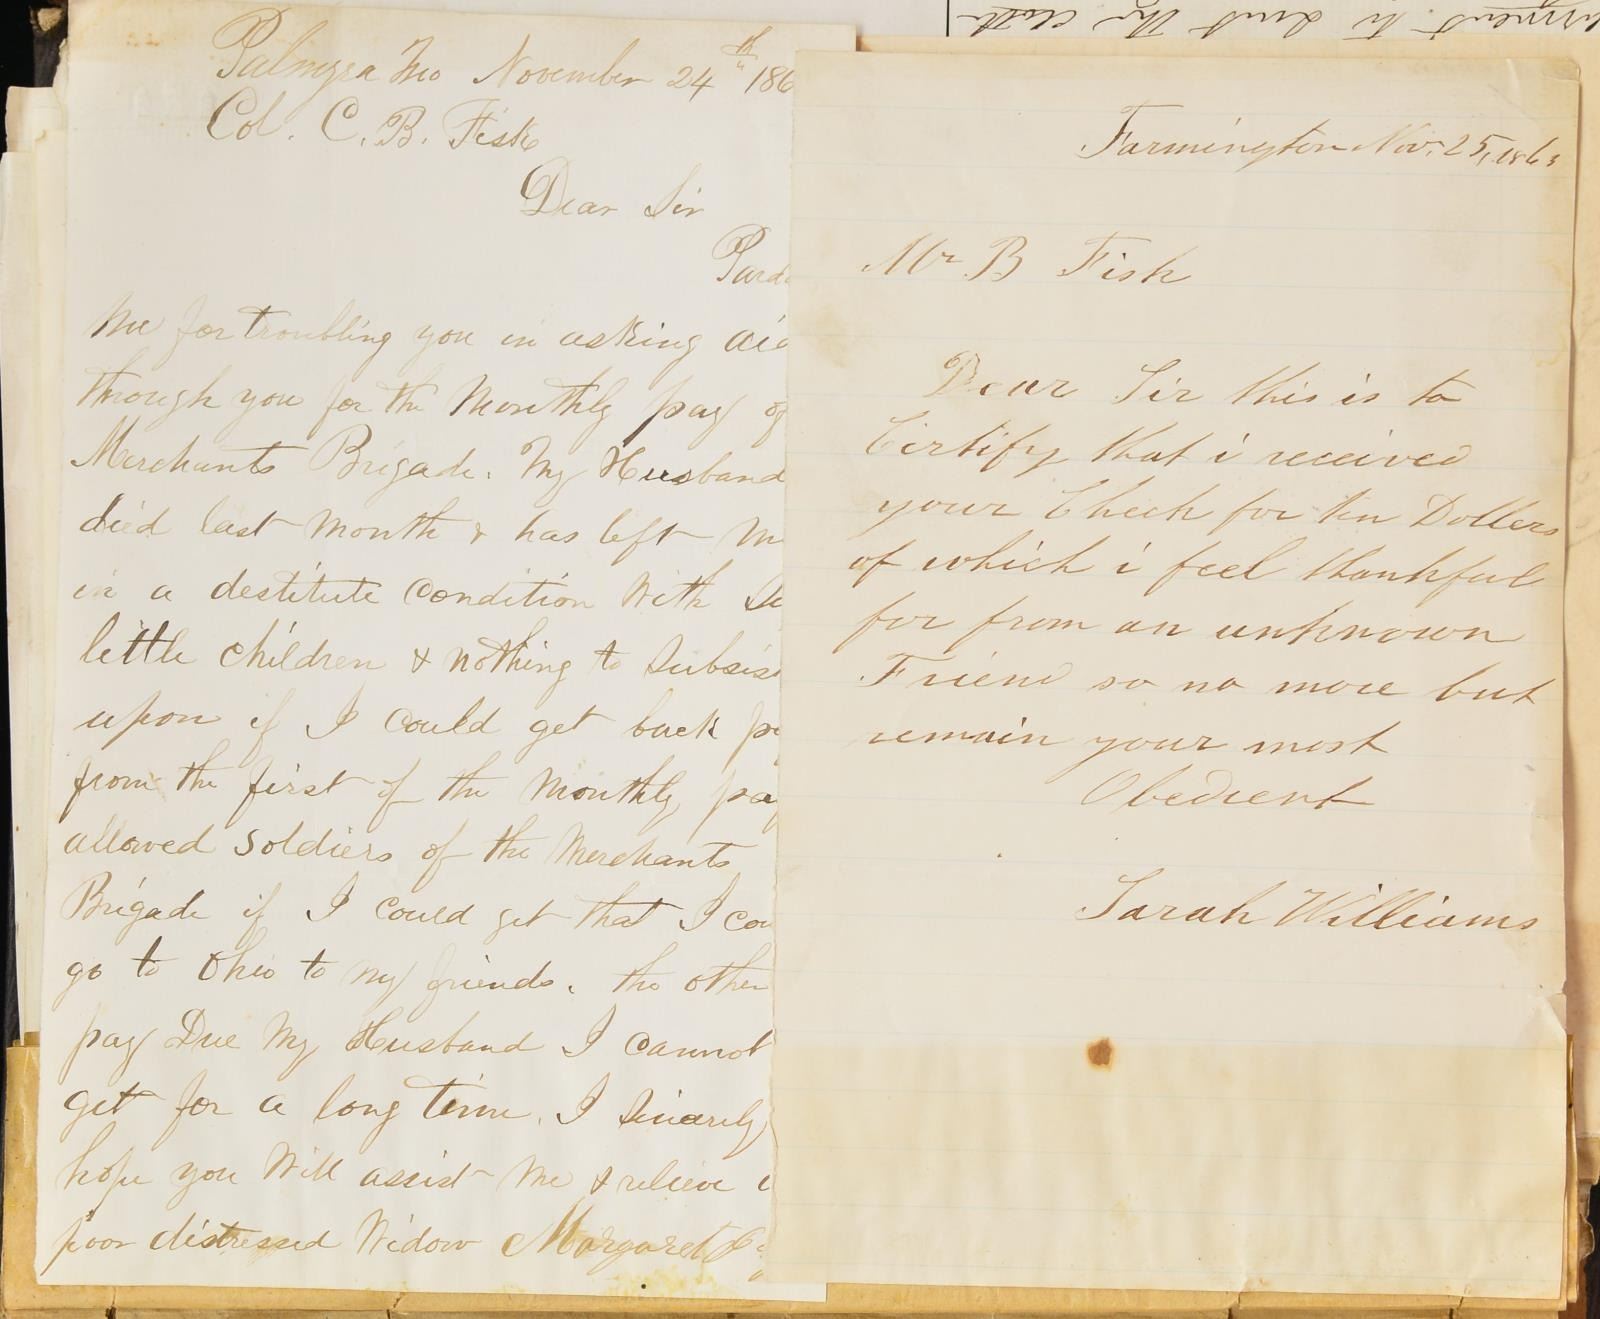 Palmyra Mo November 24th 186
Col. C. B. Fisk
Dear Sir
Pard
Me for troubling you in asking aid
through you for the Monthly pay of
Merchants Brigade. My Husband
died last Month & has left M
in a destitute Condition With
little children & nothing to Subsis
upon if I could get back p
from the first of the Monthly pa
allowed Soldiers of the Merchants
Brigade if I could get that I cou
go to Ohio to my friends. the other
pay Due My Husband I cannot
get for a long time. I Sincerely
hope you Will assist Me & relieve
poor distressed Widow Margaret
Farmington Nov. 25, 1863
Mr B Fish
Dear Sir this is to
Cirtify that i received
your Check for ten Dollers
of which i feel thankful
for from an unknown
Friend so no more but
remain your most
Obedient
Sarah Williams
to dust the cloth